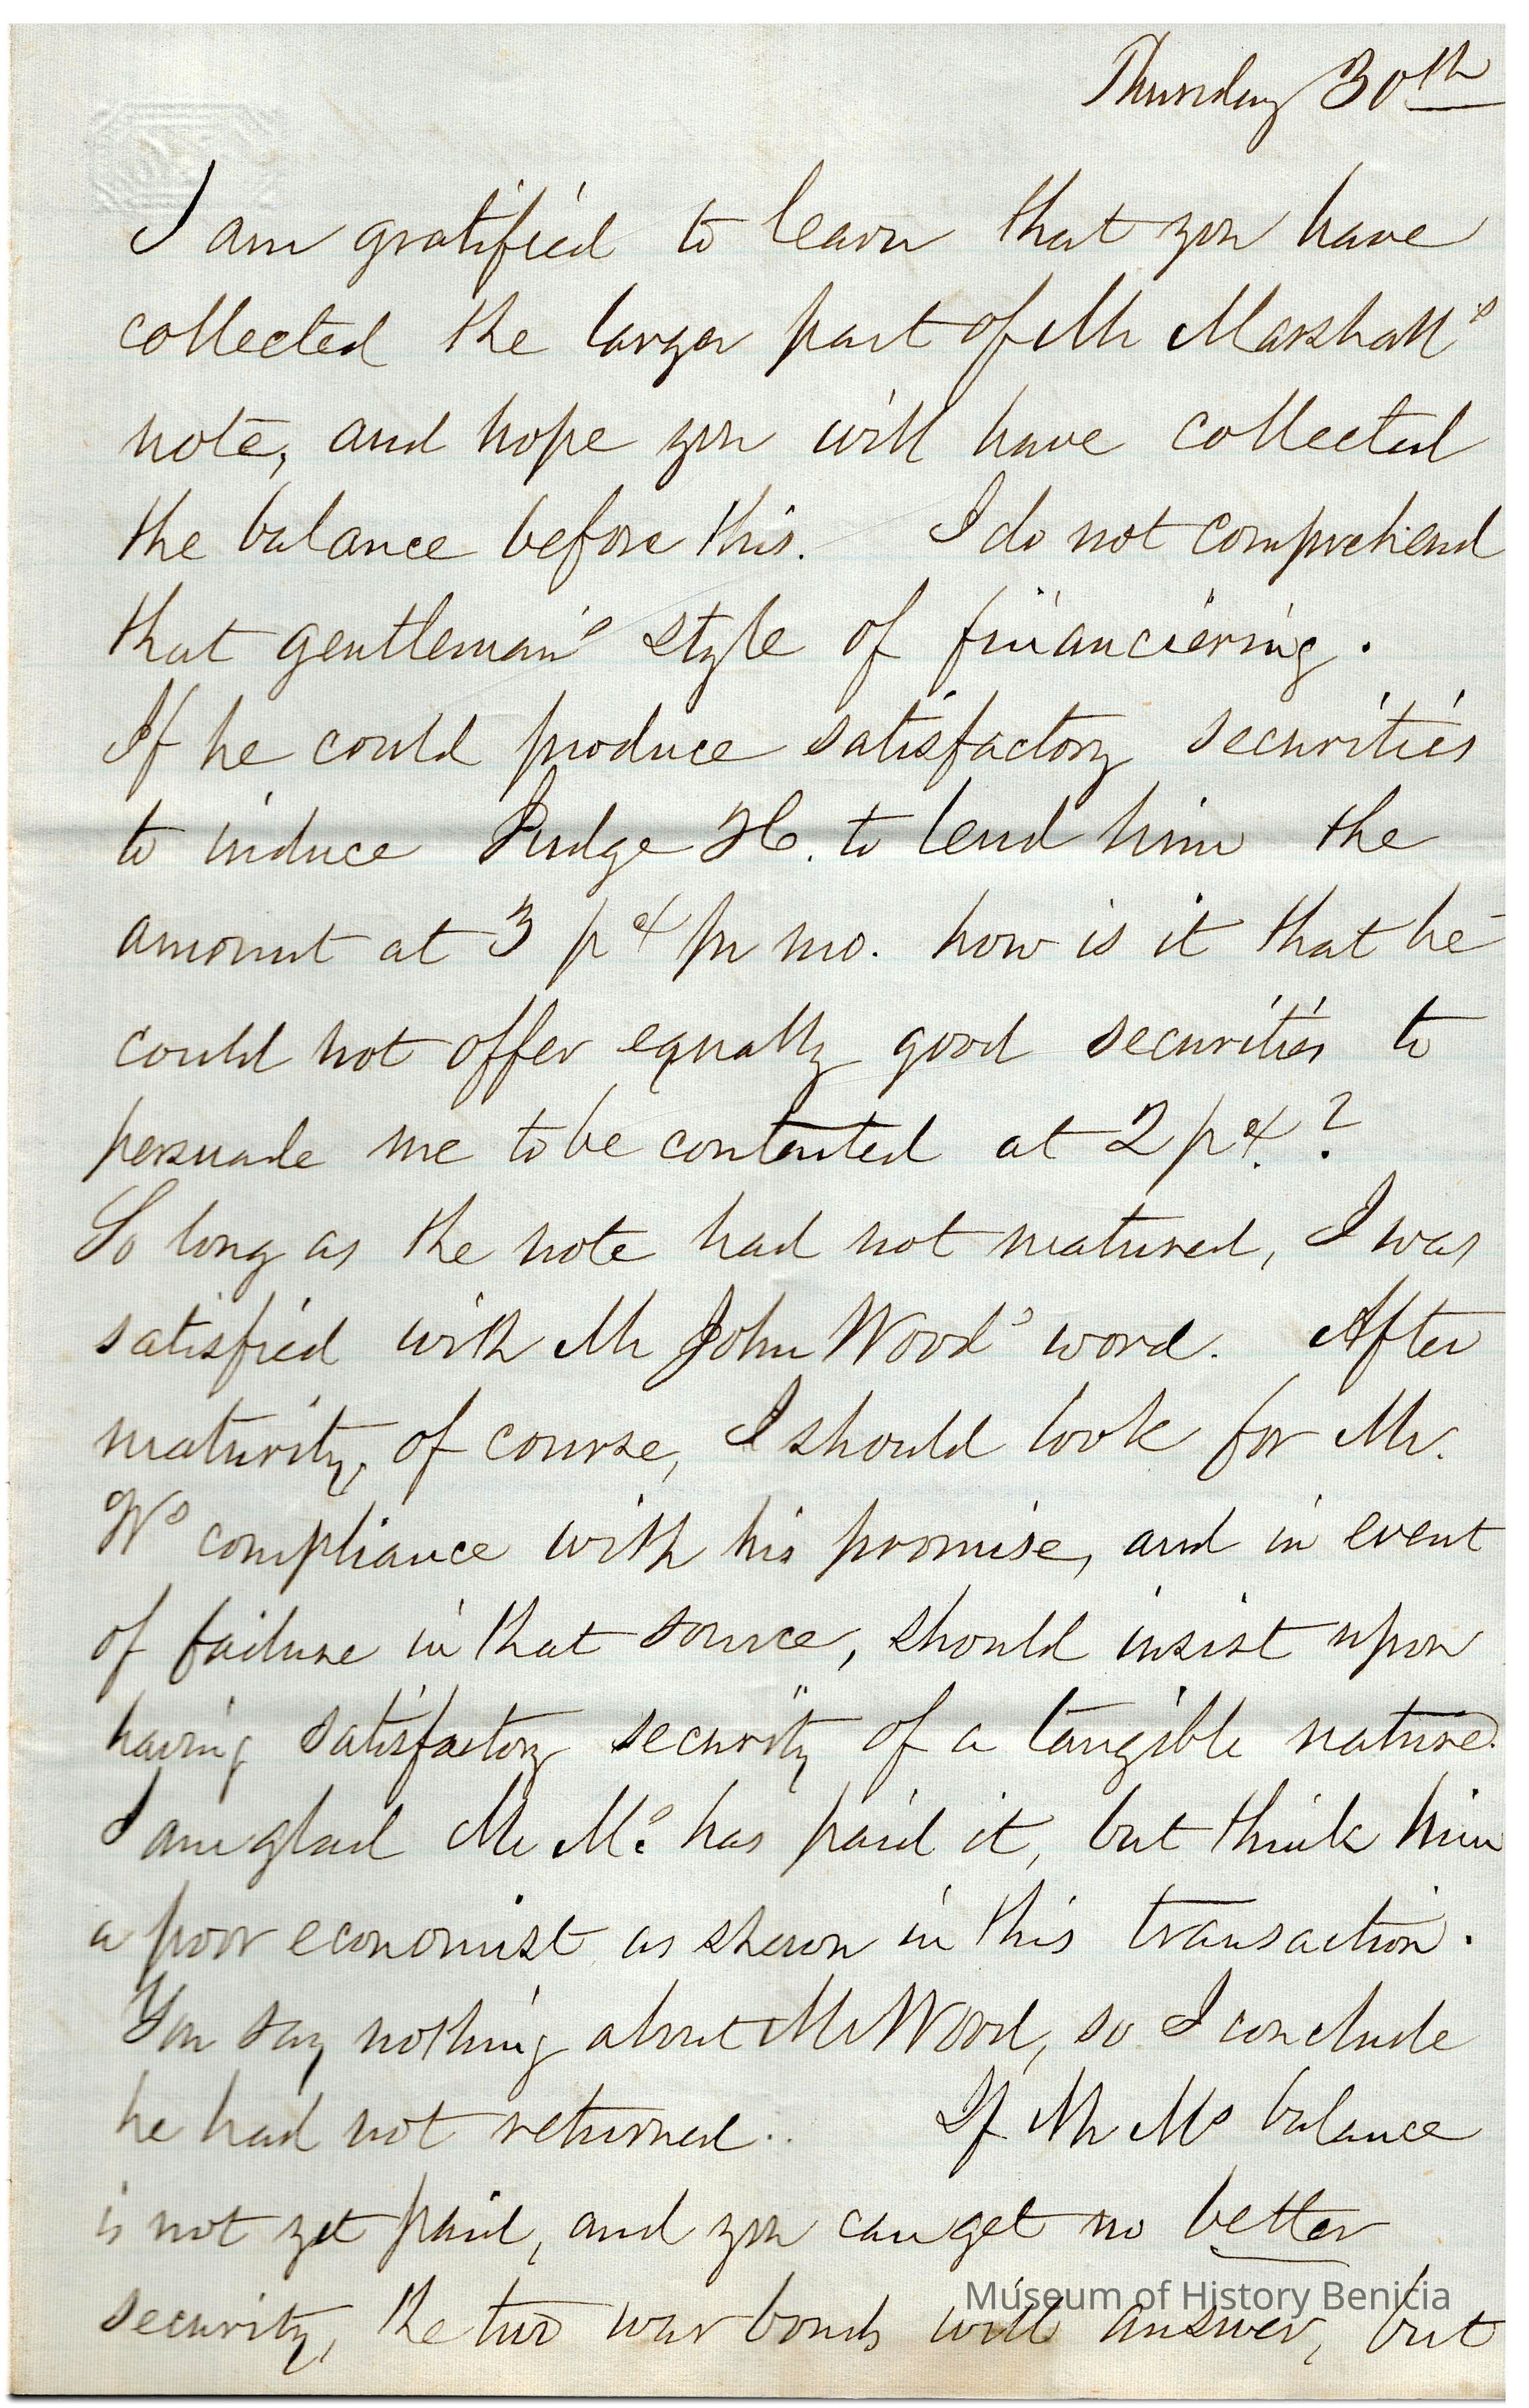 Thursday 30th
I am gratified to learn that you have
collected the larger part of Mr Marshall's
note, and hope you will have collected
the balance before this. I do not comprehend
that gentleman's style of financiering.
If he could produce satisfactory securities
to induce Judge H. to lend him the
amount at 3 p ct pr mo. how is it that he
could not offer equally good securities to
persuade me to be contented at 2 p ct.?
So long as the note had not matured, I was
satisfied with Mr John Wood's word. After
maturity, of course, I should look for Mr.
W's compliance with his promise, and in event
of failure in that source, should insist upon
having satisfactory security of a tangible nature.
I am glad Mr M.s has paid it, but think him
a poor economist as shewn in this transaction.
You say nothing about Mr Wood, so I conclude
he had not returned.. If Mr Ms balance
is not yet paid, and you can get no better
security, the two war bonds will answer, but
Museum of History Benicia